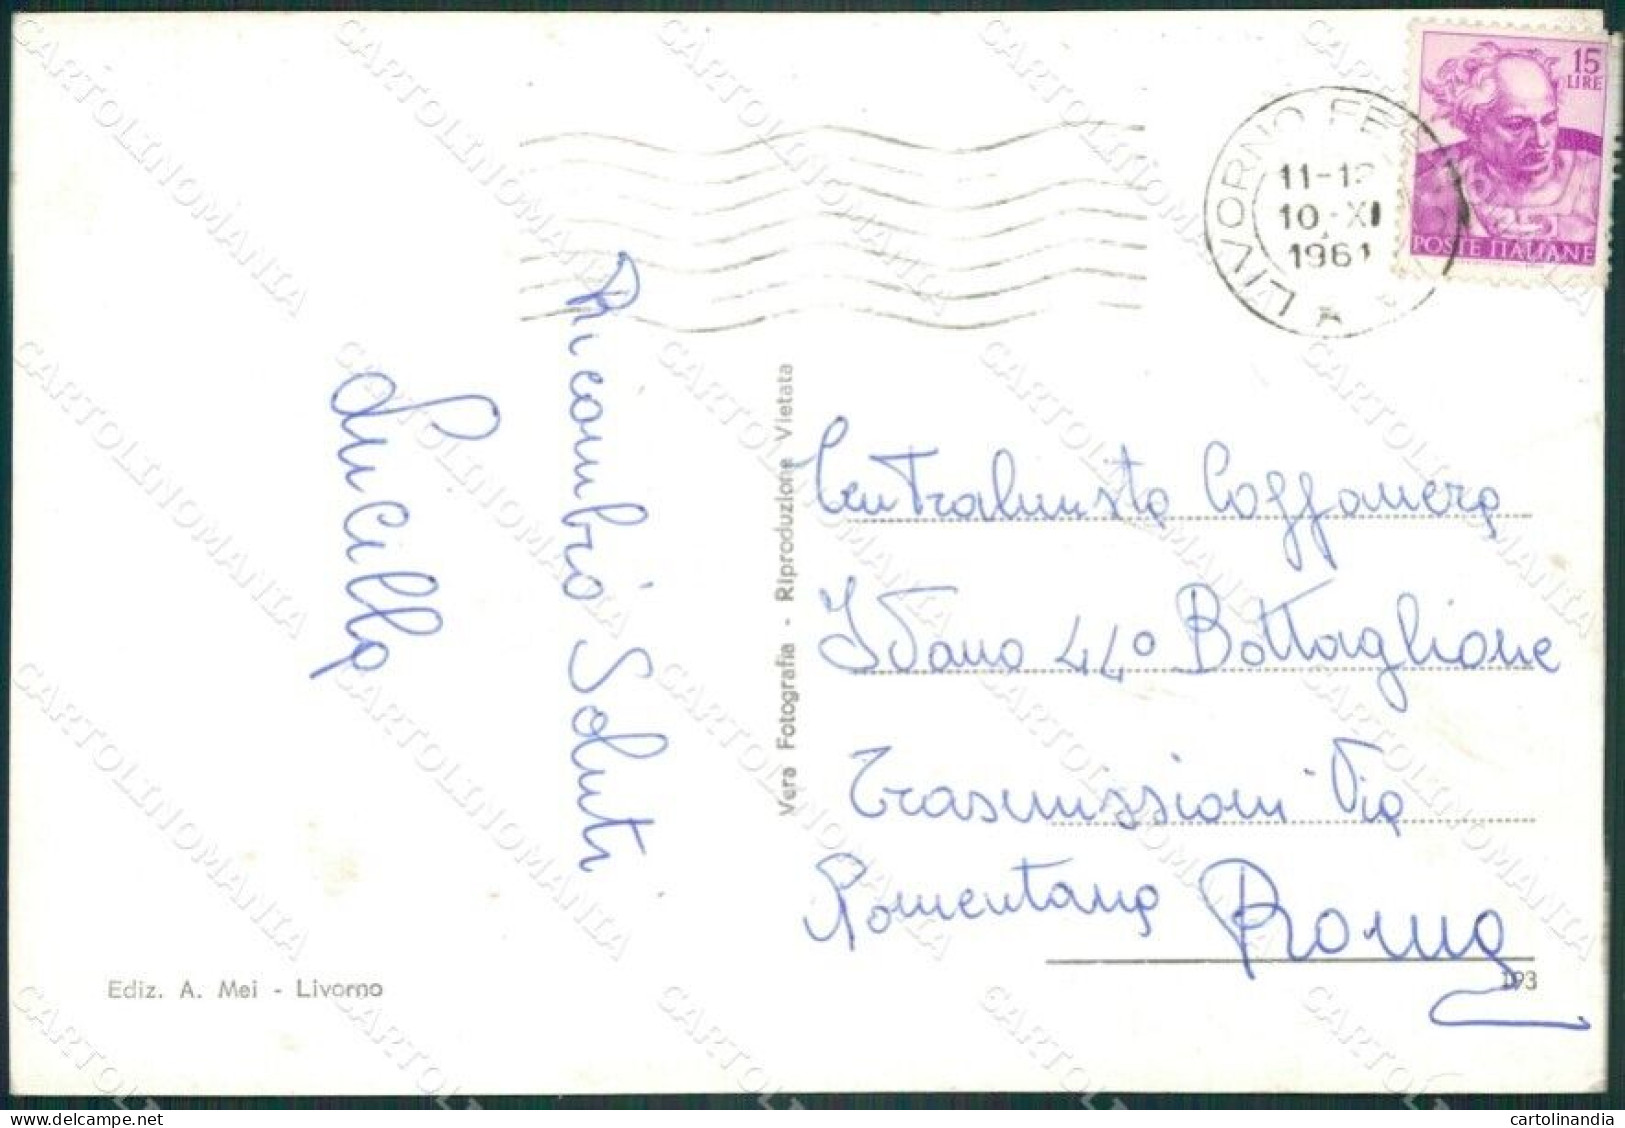 15
LIRE
POSTE ITALIANE
LIVORNO FE
11-12
10.XI
1961
Ricambio Saluti
Lucilla
Vera Fotografia - Riproduzione Vietata
Centralinista Coffanera
Idano 44° Battaglione
Trasmissioni Via
Nomentana Roma
Ediz. A. Mei - Livorno
193
CARTOLINOMANIA
www.delcampe.net
cartolinandia